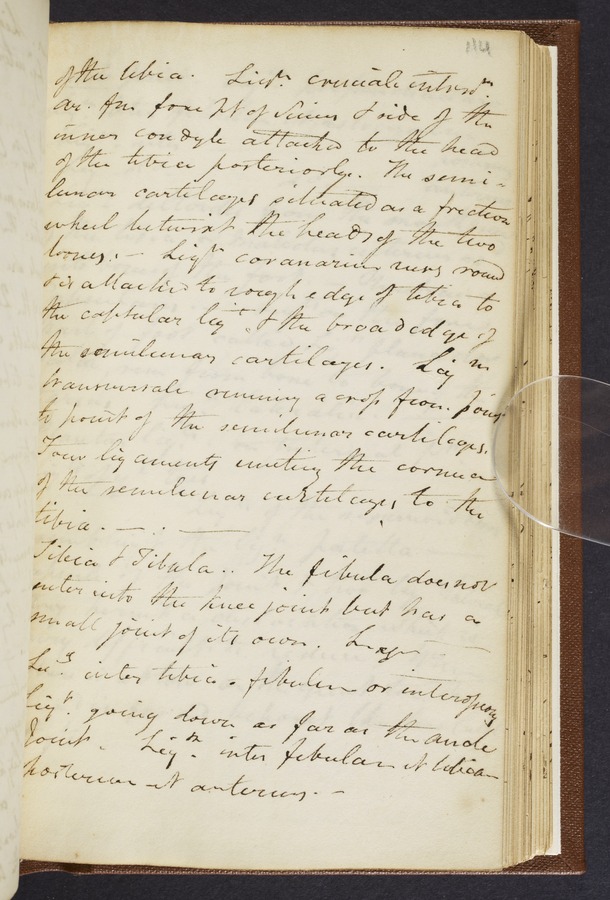 of the tibia. Ligm. cruciale
the fore pt of & side of the
inner condyle attached to the head
of the tibia posteriorly. The semi-
lunar cartilages situated as a friction
wheel betwixt the heads of the two
bones. – Ligm coronarium runs round
& is attached to rough edge of tibia to
the capsular ligt. & the broad edge of
the semilunar cartilages. Lig m
transversale running across from point
to point of the semilunar cartilages.
Four ligaments uniting the cornua
of the semilunar cartilages to the
tibia. — . —
Tibia & Fibula .. The fibula does not
enter into the knee joint but has a
small joint of its own.
inter tibia & fibulam or interosseus
Ligt. going down as far as the ancle
Joint. Ligm. inter fibulam et tibiam
posterius et anterius. –